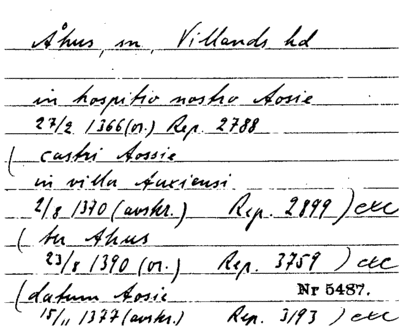 Åhus, sn, Villands hd
in hospitio nostro Aosie
27/2 1366 (or.) Rep. 2788
( castri Aossie
in villa Auxiensi
2/8 1370 (avskr.) Rep. 2899 ) etc
( tu Ahus
23/8 1390 (or.) Rep. 3759 ) etc
( datum Aosie Nr 5487.
15/11 1377 (avskr.) Rep. 3193 ) etc